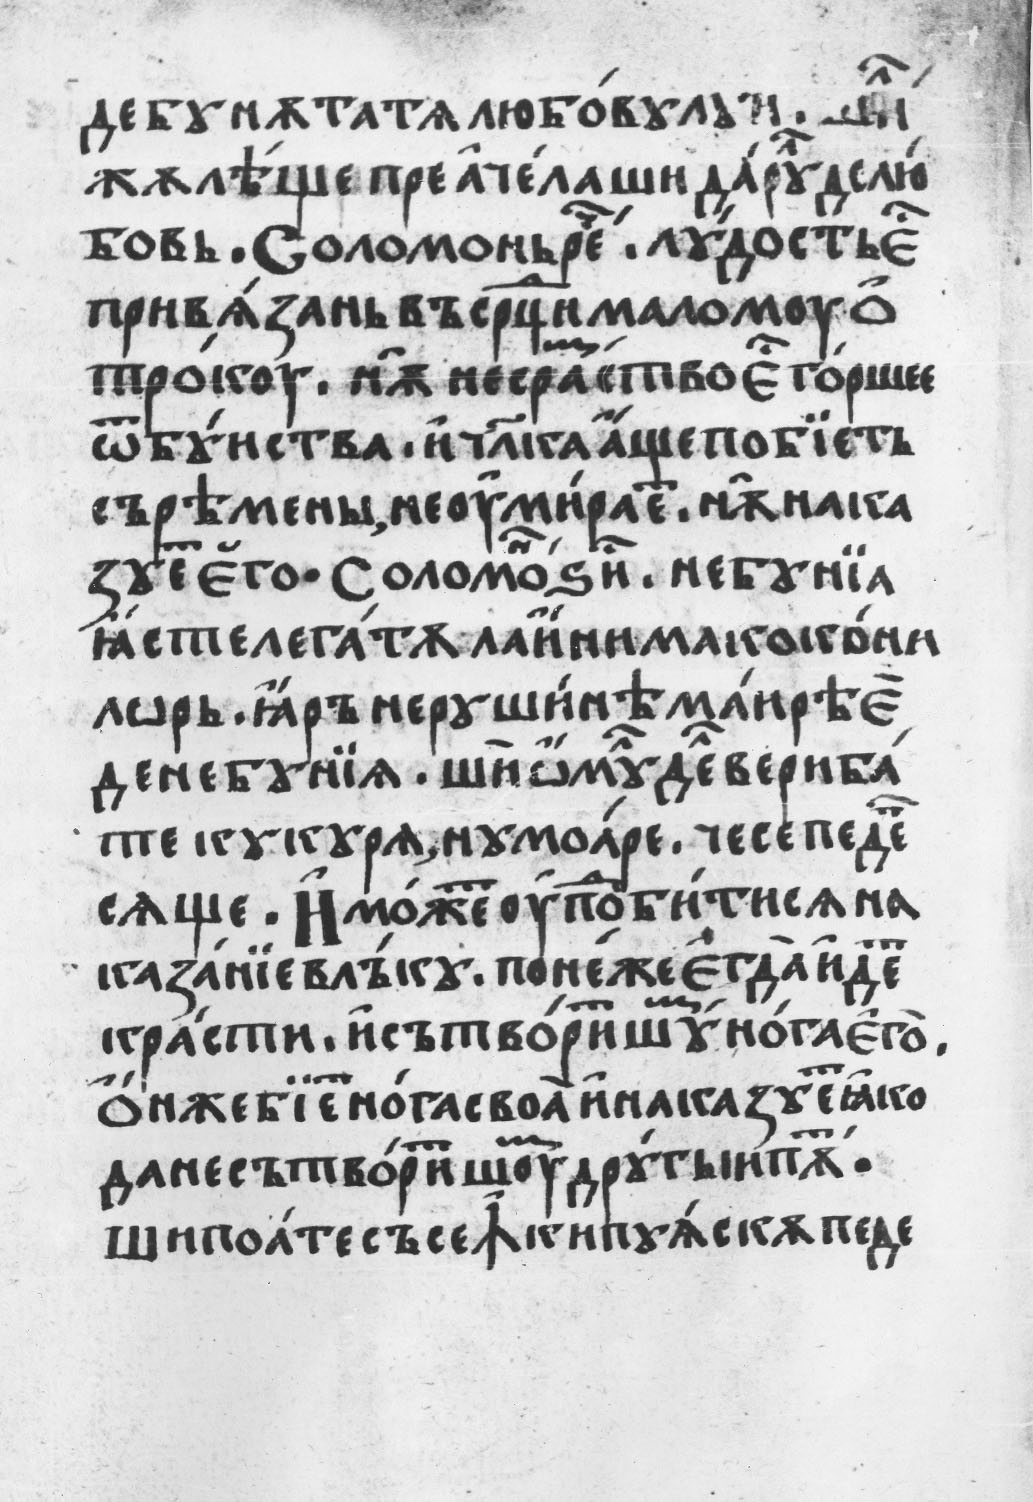 де бунѫтатѧ любо́вулуи . ши́н
жѫлѣ́ще пре а҆че́ла ши да́рꙋл де лю́
бовь . Соломонь ре҇ . лꙋ́дость є҆҇
привѧ́зань въ срⷣци маломоу ѻ҆
тро́коу . нѫ҆ несраⷳ҇ство є҆҇ го́ршее
ѿ бу́нства . и҆ чл҃ка а҆́ще побїеть
съ рѣмены , не оу҆ми́раеⷮ . нѫ҆ нака
зуеⷮ є҆го . Соломѡ́ⷩ ѕи҆ . небунїа
ꙗ҆́сте легатѫ ла и҆́нима кокѡ́ни
лѡрь . ꙗ҆́ръ неруши́нѣ маи рѣ є҆҇
де небунїѧ . ши҆ ѡ҆́мꙋⷧ де веⷧри ба́
те ку курѧ , ну моа́ре . че се педеⷱ
сѧще . И҆ мо́жеⷮ оу҆пⷣоби́тисѧ на
каза́нїе влъ́ку . поне́же є҆гда̀ и҆деⷮ
кра́сти . и҆ сътво́риⷮ шⷳꙋ́ но́га є҆го̀ .
Ѻ҆́нже бїеⷮ но́га своа̀ и҆ наказуеⷮ ꙗ҆ко
да не сътво́риⷮ шⷳоу дрꙋ́гыи пѫⷮ .
Ши поа́те съ се ꙟ҆кипуѧ́скѫ педе